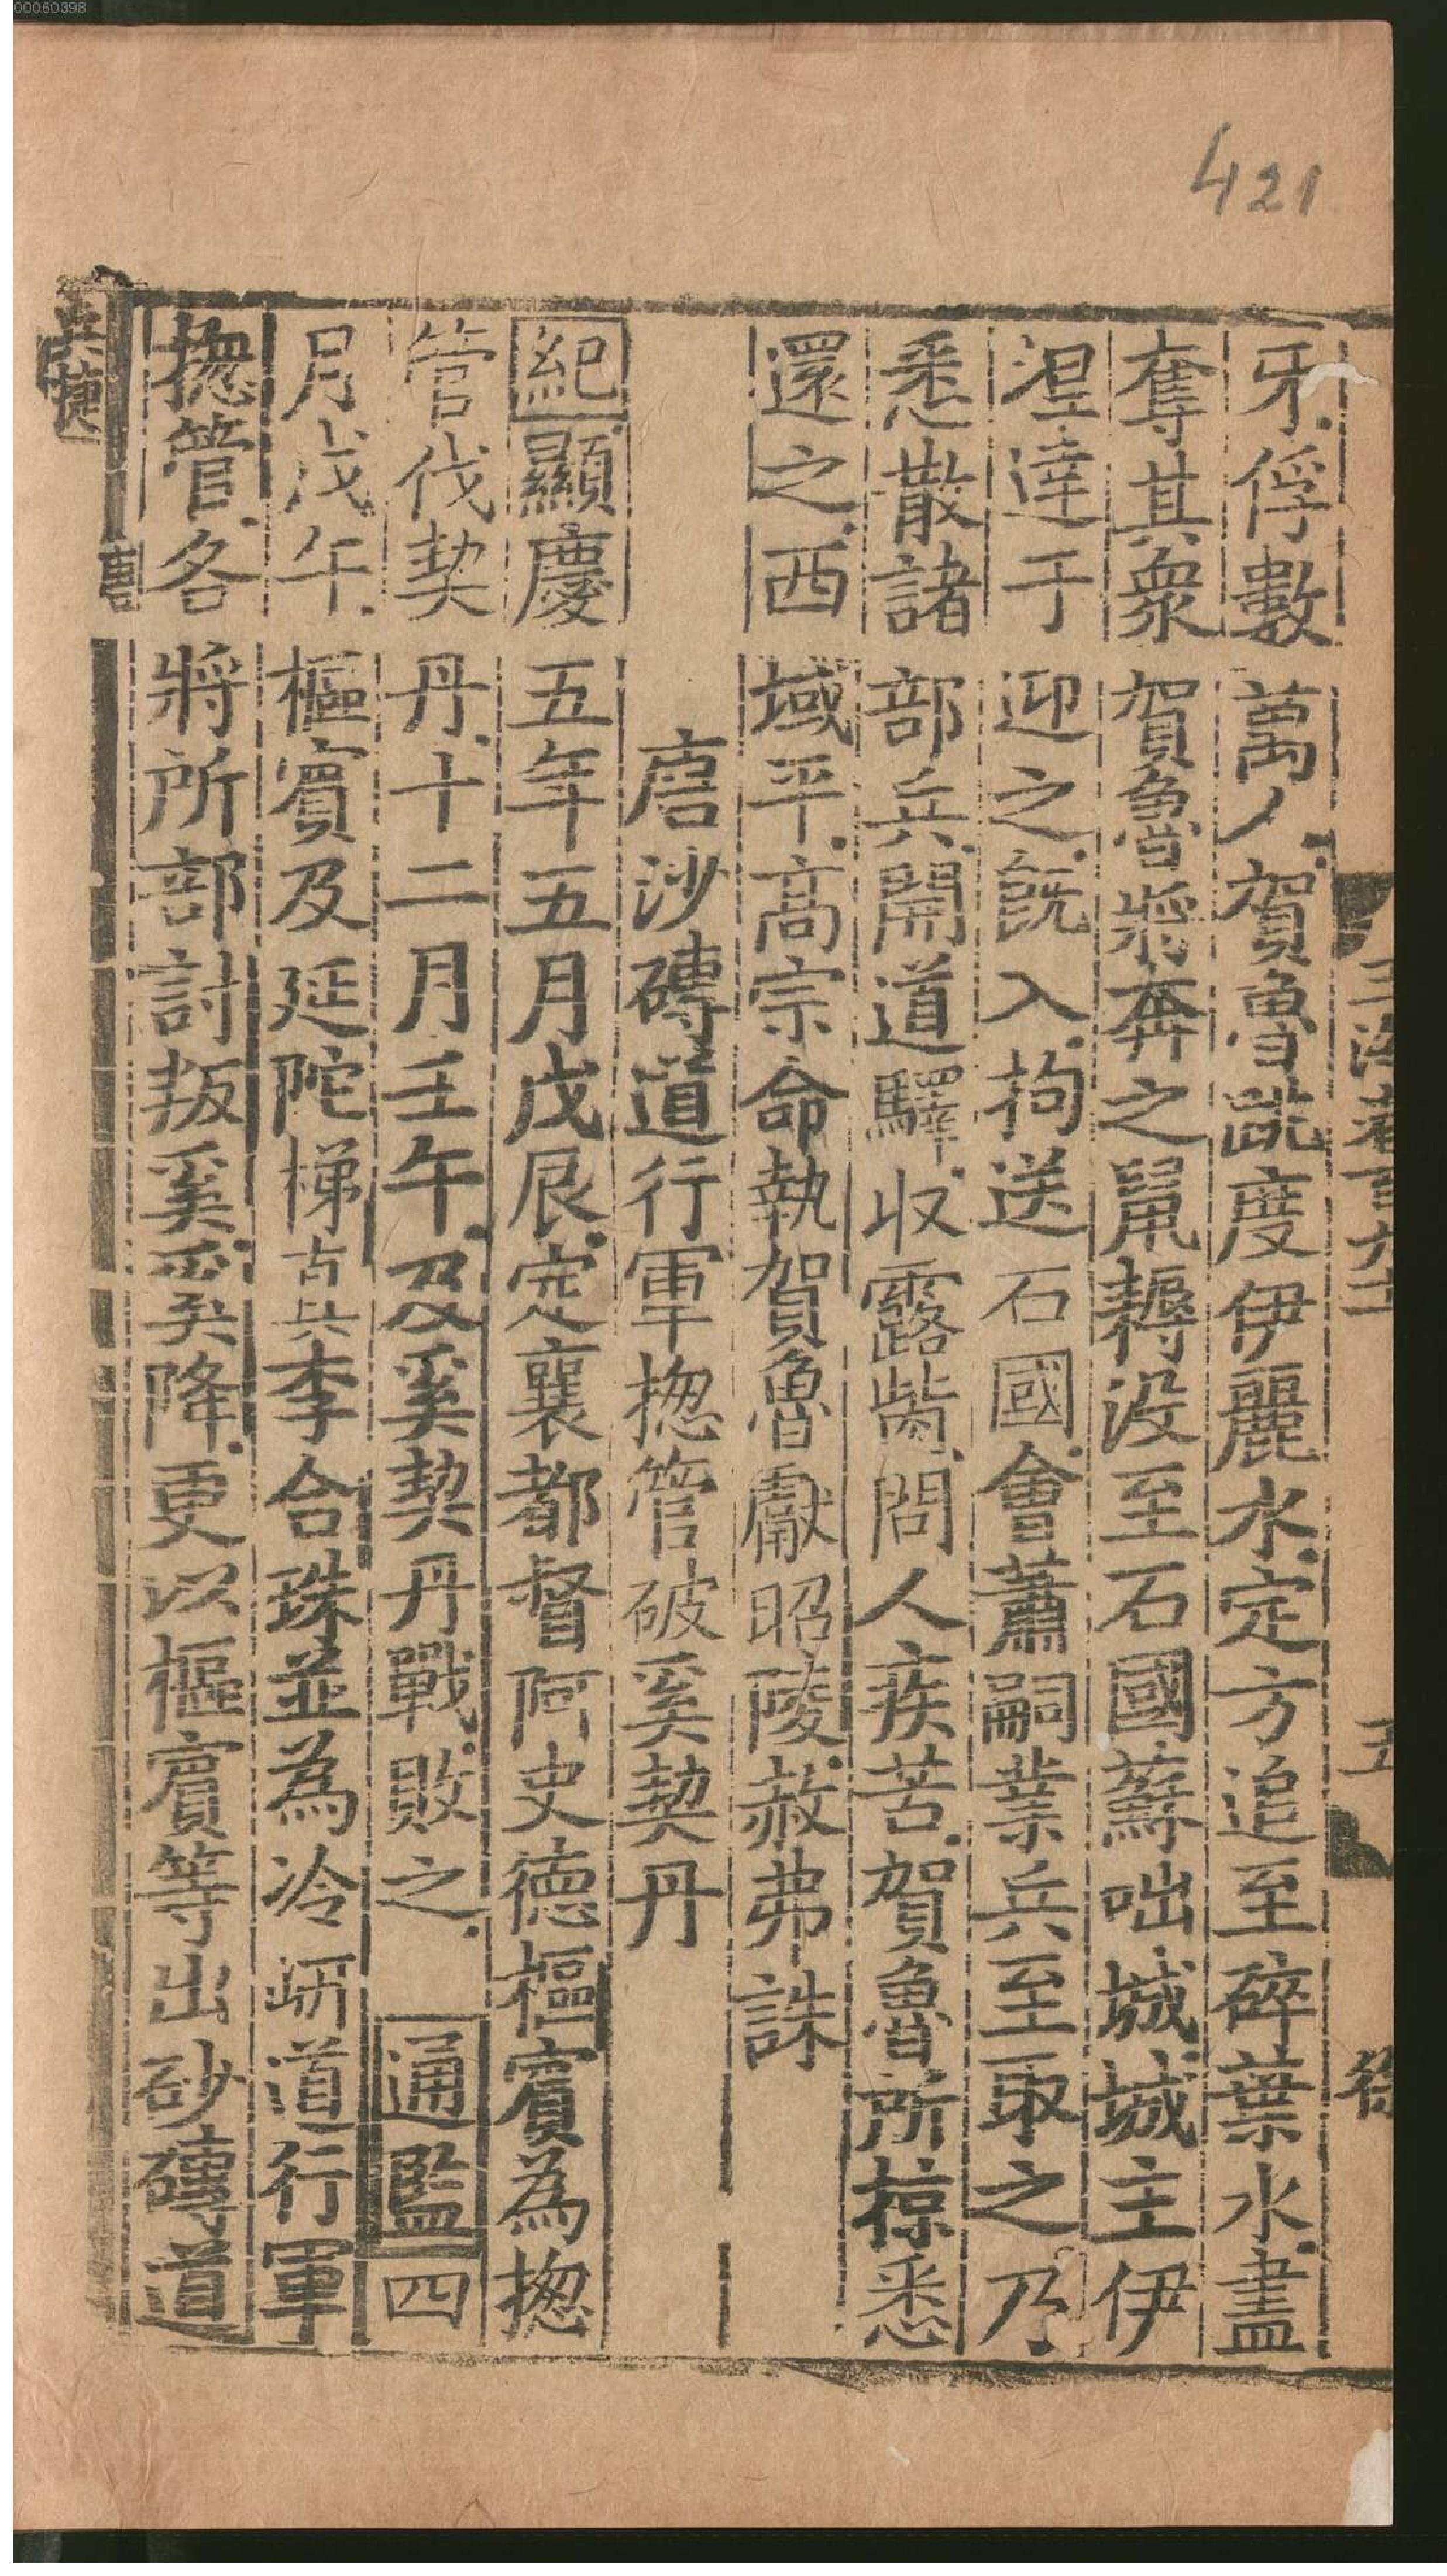 00060398
421
牙俘數萬人賀魯跳度伊麗水定方追至碎葉水盡
奪其衆賀魯將奔之鼠耨設至石國蘇咄城城主伊
涅達干迎之旣入拘送石國會蕭嗣業兵至取之乃
悉散諸部兵開道驛收露胔問人疾苦賀魯所掠悉
還之西域平高宗命執賀魯獻昭陵赦弗誅
唐沙磚道行軍揔管破奚契丹
紀顯慶五年五月戊辰定襄都督阿史德樞賓為揔
管伐契丹十二月壬午及奚契丹戰敗之通監四
月戊午樞賓及延陀梯真李合珠並為冷岍道行軍
揔管各將所部討叛奚奚降更以樞賓等出砂磚道
兵捷
唐
五